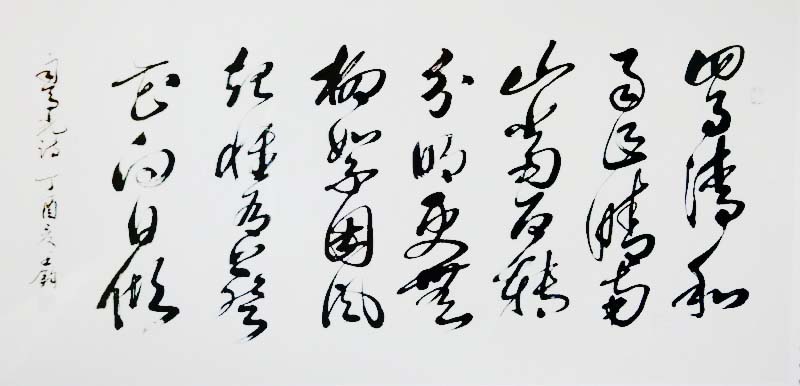 四月清和
雨乍晴南
山當户轉
分明更無
柳絮因風
起惟有葵
花向日傾
司馬光詩 丁酉夏